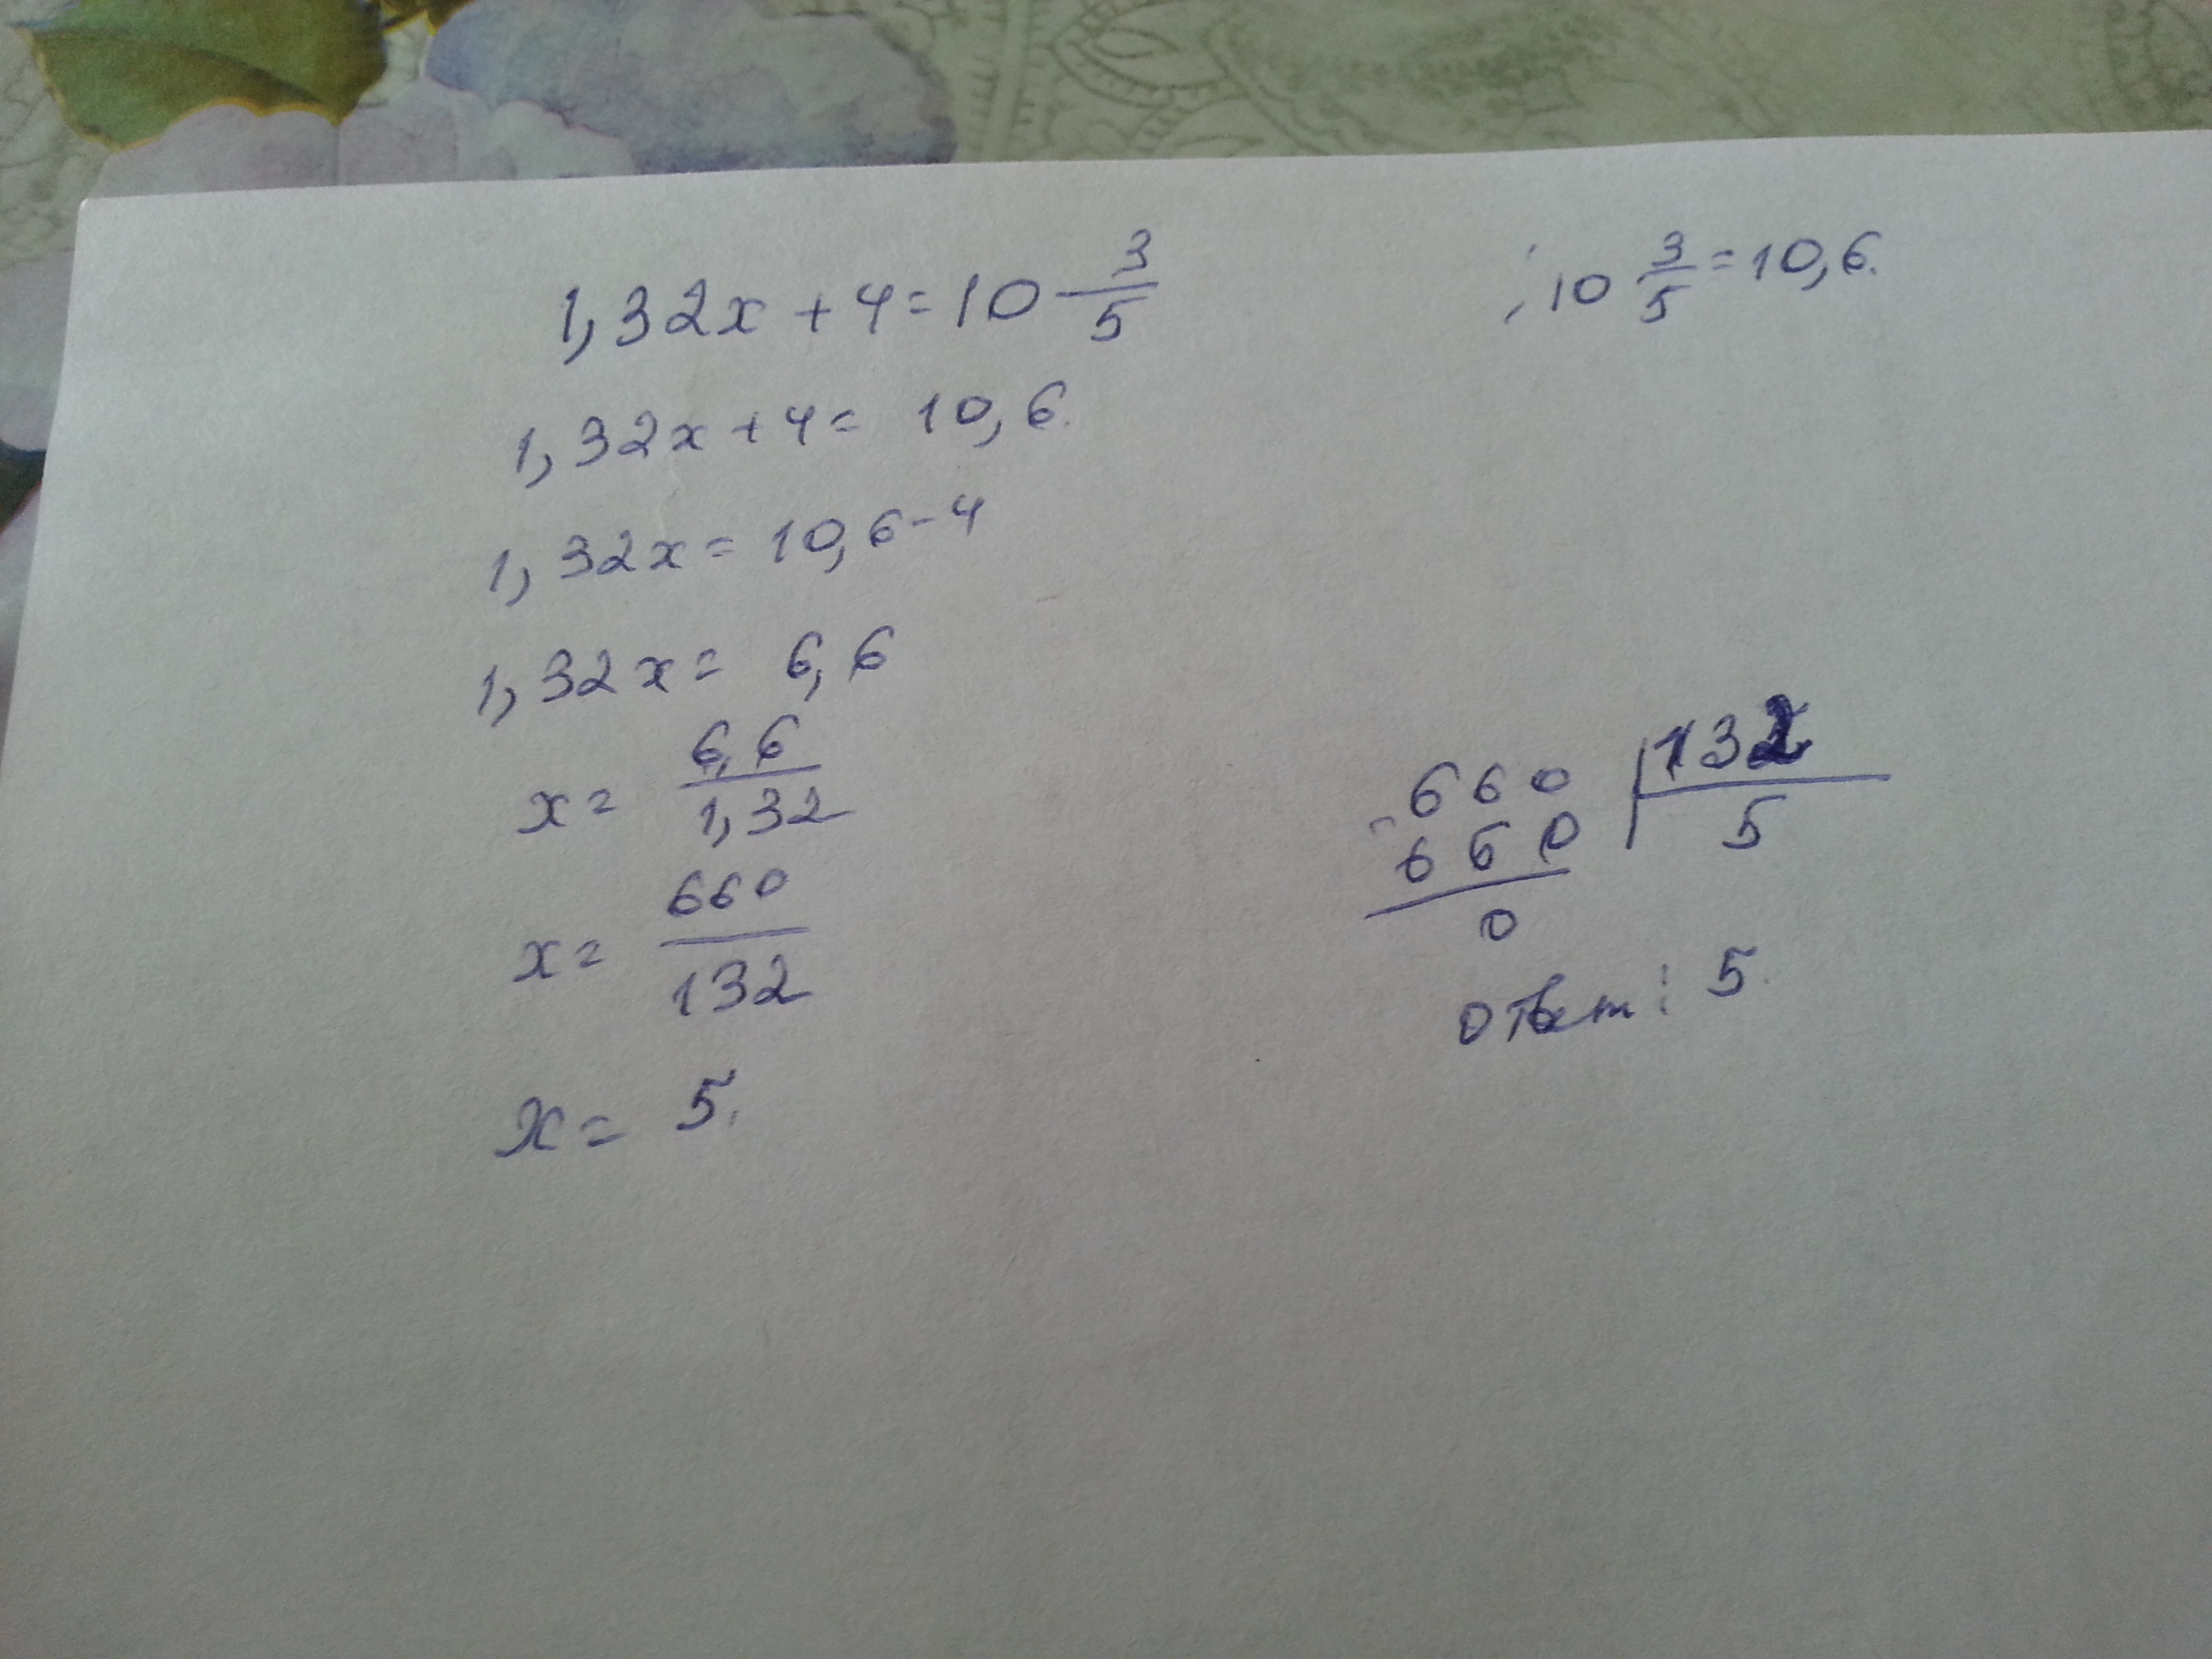 1,32x + 4 = 10 3/5
; 10 3/5 = 10,6.
1,32x + 4 = 10,6.
1,32x = 10,6 - 4
1,32x = 6,6
x = 6,6/1,32
x = 660/132
x = 5.
- 660 | 132
660 | 5
0
ответ: 5.